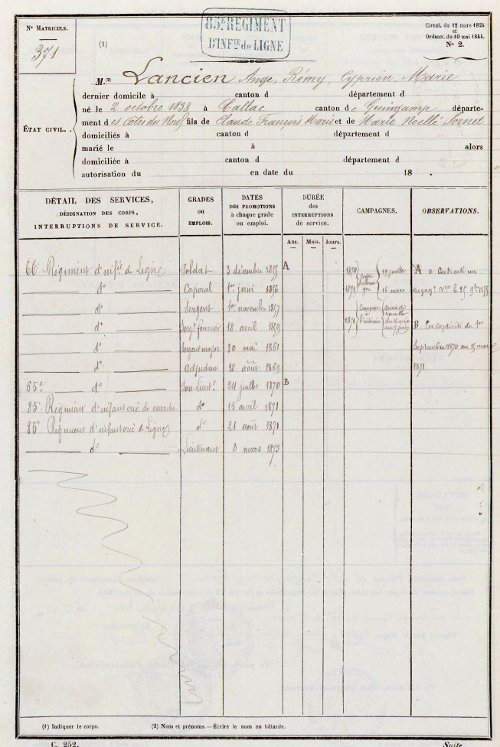 Nº MATRICULE.
371
85e RÉGIMENT
D'INFrie DE LIGNE
Circul. du 12 mars 1825
et
Ordonn. du 10 mai 1844.
Nº 2.
(1)
ÉTAT CIVIL.
Mr (2) Lancien Ange, Rémy, Cyprien, Marie
dernier domicile à canton d département d
né le 2 octobre 1838 à Callac canton de Guingamp départe-
ment des Côtes du Nord fils de Claude François Marie et de Marie Noelle
domiciliés à canton d département d
marié le à alors
domiciliée à canton d département d
autorisation du en date du 18
DÉTAIL DES SERVICES,
DÉSIGNATION DES CORPS,
INTERRUPTIONS DE SERVICE.
GRADES
OU
EMPLOIS.
DATES
DES PROMOTIONS
à chaque grade
ou emploi.
DURÉE
des
INTERRUPTIONS
de service.
Ans. Mois. Jours.
CAMPAGNES.
OBSERVATIONS.
66e Régiment d'infrie de Ligne Soldat 3 décembre 1855 A
do Caporal 1er 1856
do Sergent 1er novembre 1857
do Sergt fourrier 18 avril 1859
do Sergent major 20 mai 1861
do Adjudant 18 août 1869
65e do Sous Lieutt 24 juillet 1870 B
85e Régiment d'infanterie de marche do 15 avril 1871
85e Régiment d'infanterie de Ligne do 21 août 1871
do Lieutenant 3 mars 1873
1870
1871
19 juillet
18 mars
A a contracté un
B En captivité du 1er
Septembre 1870 au
1871
(1) Indiquer le corps. (2) Nom et prénoms. — Écrire le nom en bâtarde.
C. 252.
Suite